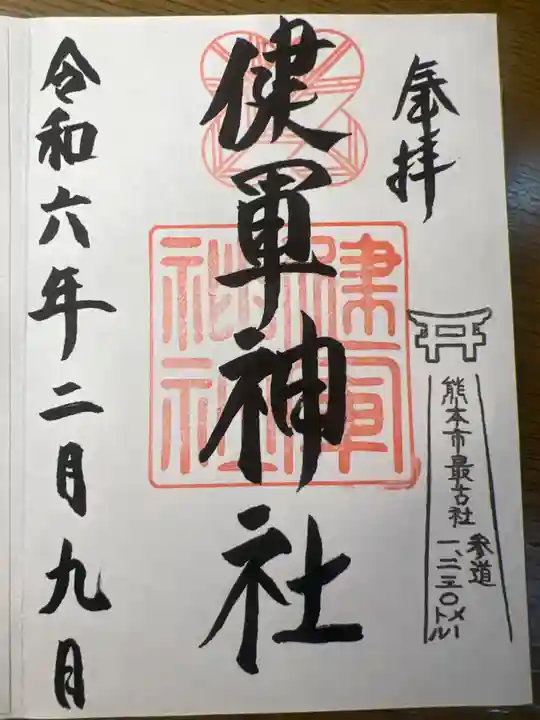 奉拝
健軍神社
健軍
神社
令和六年二月九日
熊本市最古社
参道
一、二三〇メートル